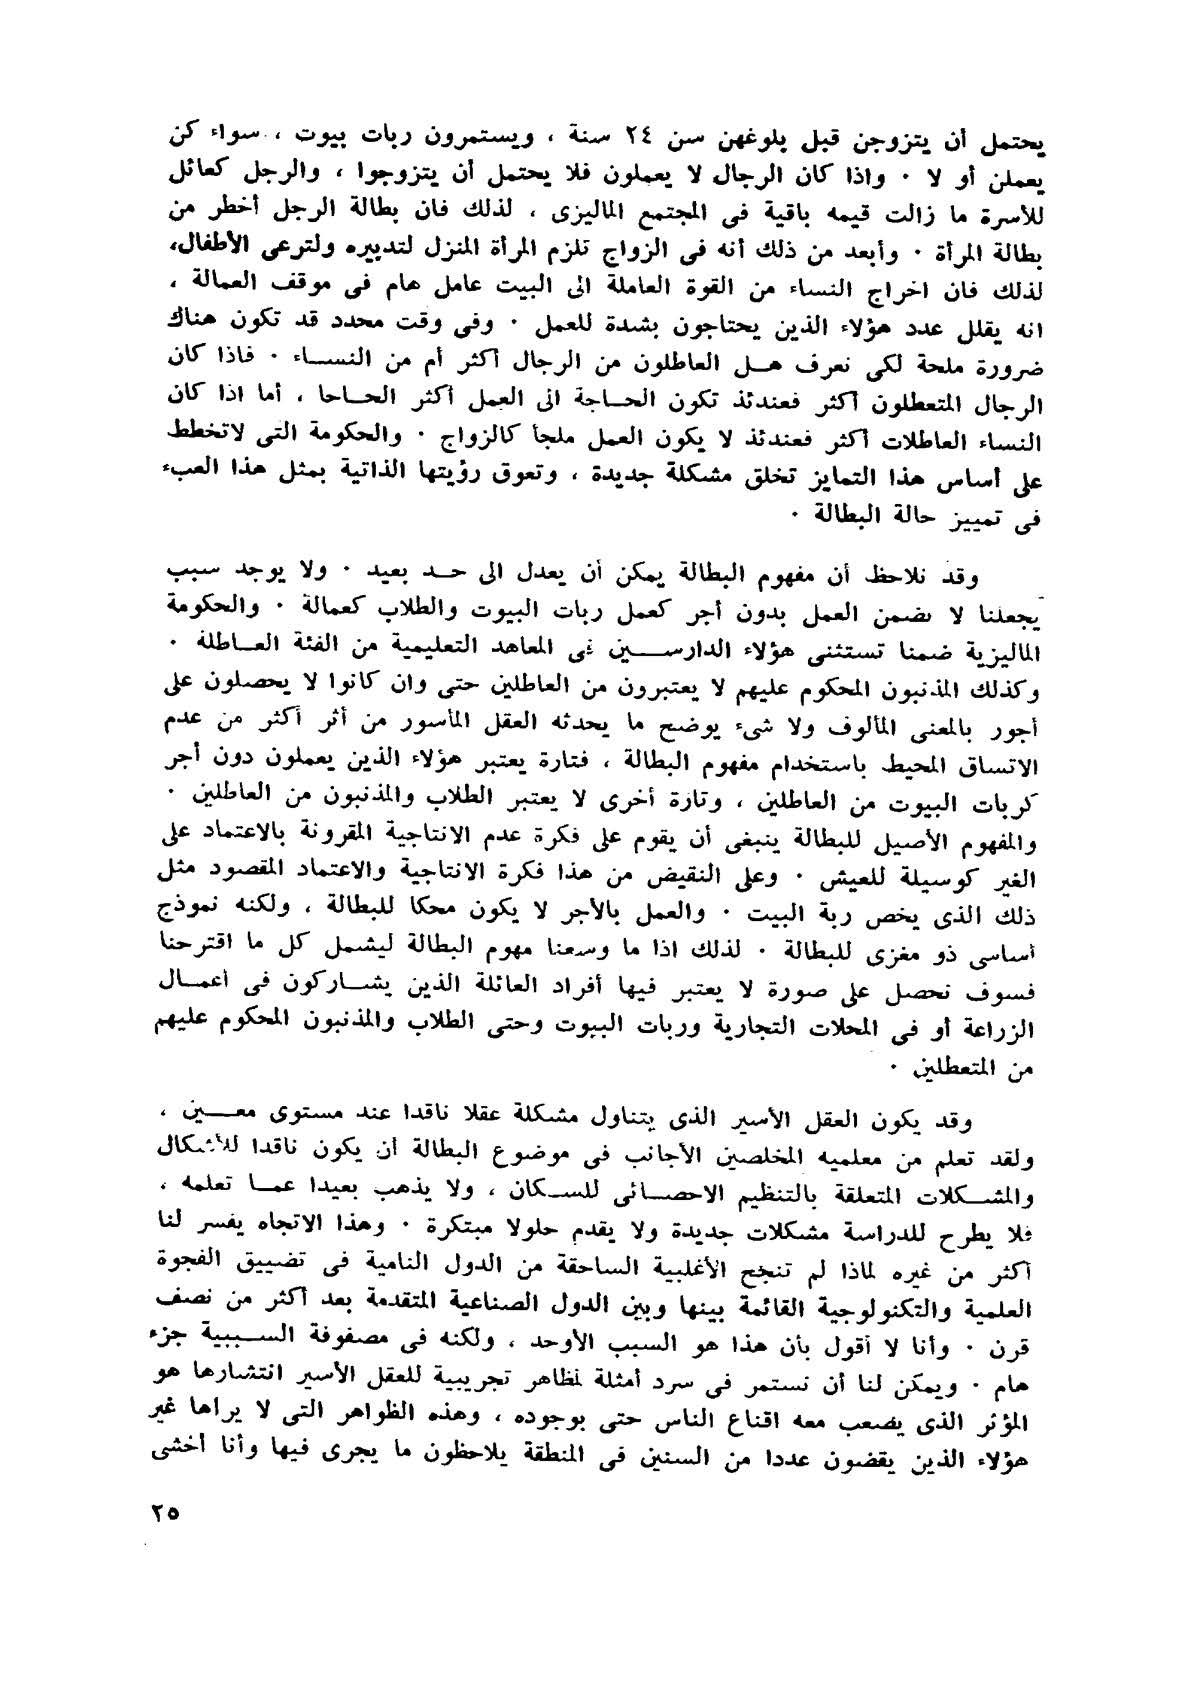 يحتمل أن يتزوجن قبل بلوغهن سن ٢٤ سنة ، ويستمرون ربات بيوت ، سواء كن
يعملن أو لا ٠ واذا كان الرجال لا يعملون فلا يحتمل أن يتزوجوا ، والرجل كعائل
للأسرة ما زالت قيمه باقية فى المجتمع الماليزى ، لذلك فان بطالة الرجل أخطر من
بطالة المرأة ٠ وأبعد من ذلك أنه فى الزواج تلزم المرأة المنزل لتدبيره ولترعى الأطفال،
لذلك فان اخراج النساء من القوة العاملة الى البيت عامل هام فى موقف العمالة ،
انه يقلل عدد هؤلاء الذين يحتاجون بشدة للعمل ٠ وفى وقت محدد قد تكون هناك
ضرورة ملحة لكى نعرف هل العاطلون من الرجال أكثر أم من النساء ٠ فاذا كان
الرجال المتعطلون أكثر فعندئذ تكون الحاجة الى العمل أكثر الحاحا ، أما اذا كان
النساء العاطلات أكثر فعندئذ لا يكون العمل ملجأ كالزواج ٠ والحكومة التى لاتخطط
على أساس هذا التمايز تخلق مشكلة جديدة ، وتعوق رؤيتها الذاتية بمثل هذا العبء
فى تمييز حالة البطالة ٠
وقد نلاحظ أن مفهوم البطالة يمكن أن يعدل الى حد بعيد ٠ ولا يوجد سبب
يجعلنا لا نضمن العمل بدون أجر كعمل ربات البيوت والطلاب كعمالة ٠ والحكومة
الماليزية ضمنا تستثنى هؤلاء الدارسين فى المعاهد التعليمية من الفئة العاطلة ٠
وكذلك المذنبون المحكوم عليهم لا يعتبرون من العاطلين حتى وان كانوا لا يحصلون على
أجور بالمعنى المألوف ولا شىء يوضح ما يحدثه العقل المأسور من أثر أكثر من عدم
الاتساق المحيط باستخدام مفهوم البطالة ، فتارة يعتبر هؤلاء الذين يعملون دون أجر
كربات البيوت من العاطلين ، وتازة أخرى لا يعتبر الطلاب والمذنبون من العاطلين ٠
والمفهوم الأصيل للبطالة ينبغى أن يقوم على فكرة عدم الانتاجية المقرونة بالاعتماد على
الغير كوسيلة للعيش ٠ وعلى النقيض من هذا فكرة الانتاجية والاعتماد المقصود مثل
ذلك الذى يخص ربة البيت ٠ والعمل بالأجر لا يكون محكا للبطالة ، ولكنه نموذج
أساسى ذو مغزى للبطالة ٠ لذلك اذا ما وسعنا مهوم البطالة ليشمل كل ما اقترحنا
فسوف نحصل على صورة لا يعتبر فيها أفراد العائلة الذين يشاركون فى أعمال
الزراعة أو فى المحلات التجارية وربات البيوت وحتى الطلاب والمذنبون المحكوم عليهم
من المتعطلين ٠
وقد يكون العقل الأسير الذى يتناول مشكلة عقلا ناقدا عند مستوى معين ،
ولقد تعلم من معلميه المخلصين الأجانب فى موضوع البطالة أن يكون ناقدا للأشكال
والمشكلات المتعلقة بالتنظيم الاحصائى للسكان ، ولا يذهب بعيدا عما تعلمه ،
فلا يطرح للدراسة مشكلات جديدة ولا يقدم حلولا مبتكرة ٠ وهذا الاتجاه يفسر لنا
أكثر من غيره لماذا لم تنجح الأغلبية الساحقة من الدول النامية فى تضييق الفجوة
العلمية والتكنولوجية القائمة بينها وبين الدول الصناعية المتقدمة بعد أكثر من نصف
قرن ٠ وأنا لا أقول بأن هذا هو السبب الأوحد ، ولكنه فى مصفوفة السببية جزء
هام ٠ ويمكن لنا أن نستمر فى سرد أمثلة لمظاهر تجريبية للعقل الأسير انتشارها هو
المؤثر الذى يصعب معه اقناع الناس حتى بوجوده ، وهذه الظواهر التى لا يراها غير
هؤلاء الذين يقضون عددا من السنين فى المنطقة يلاحظون ما يجرى فيها وأنا أخشى
٢٥